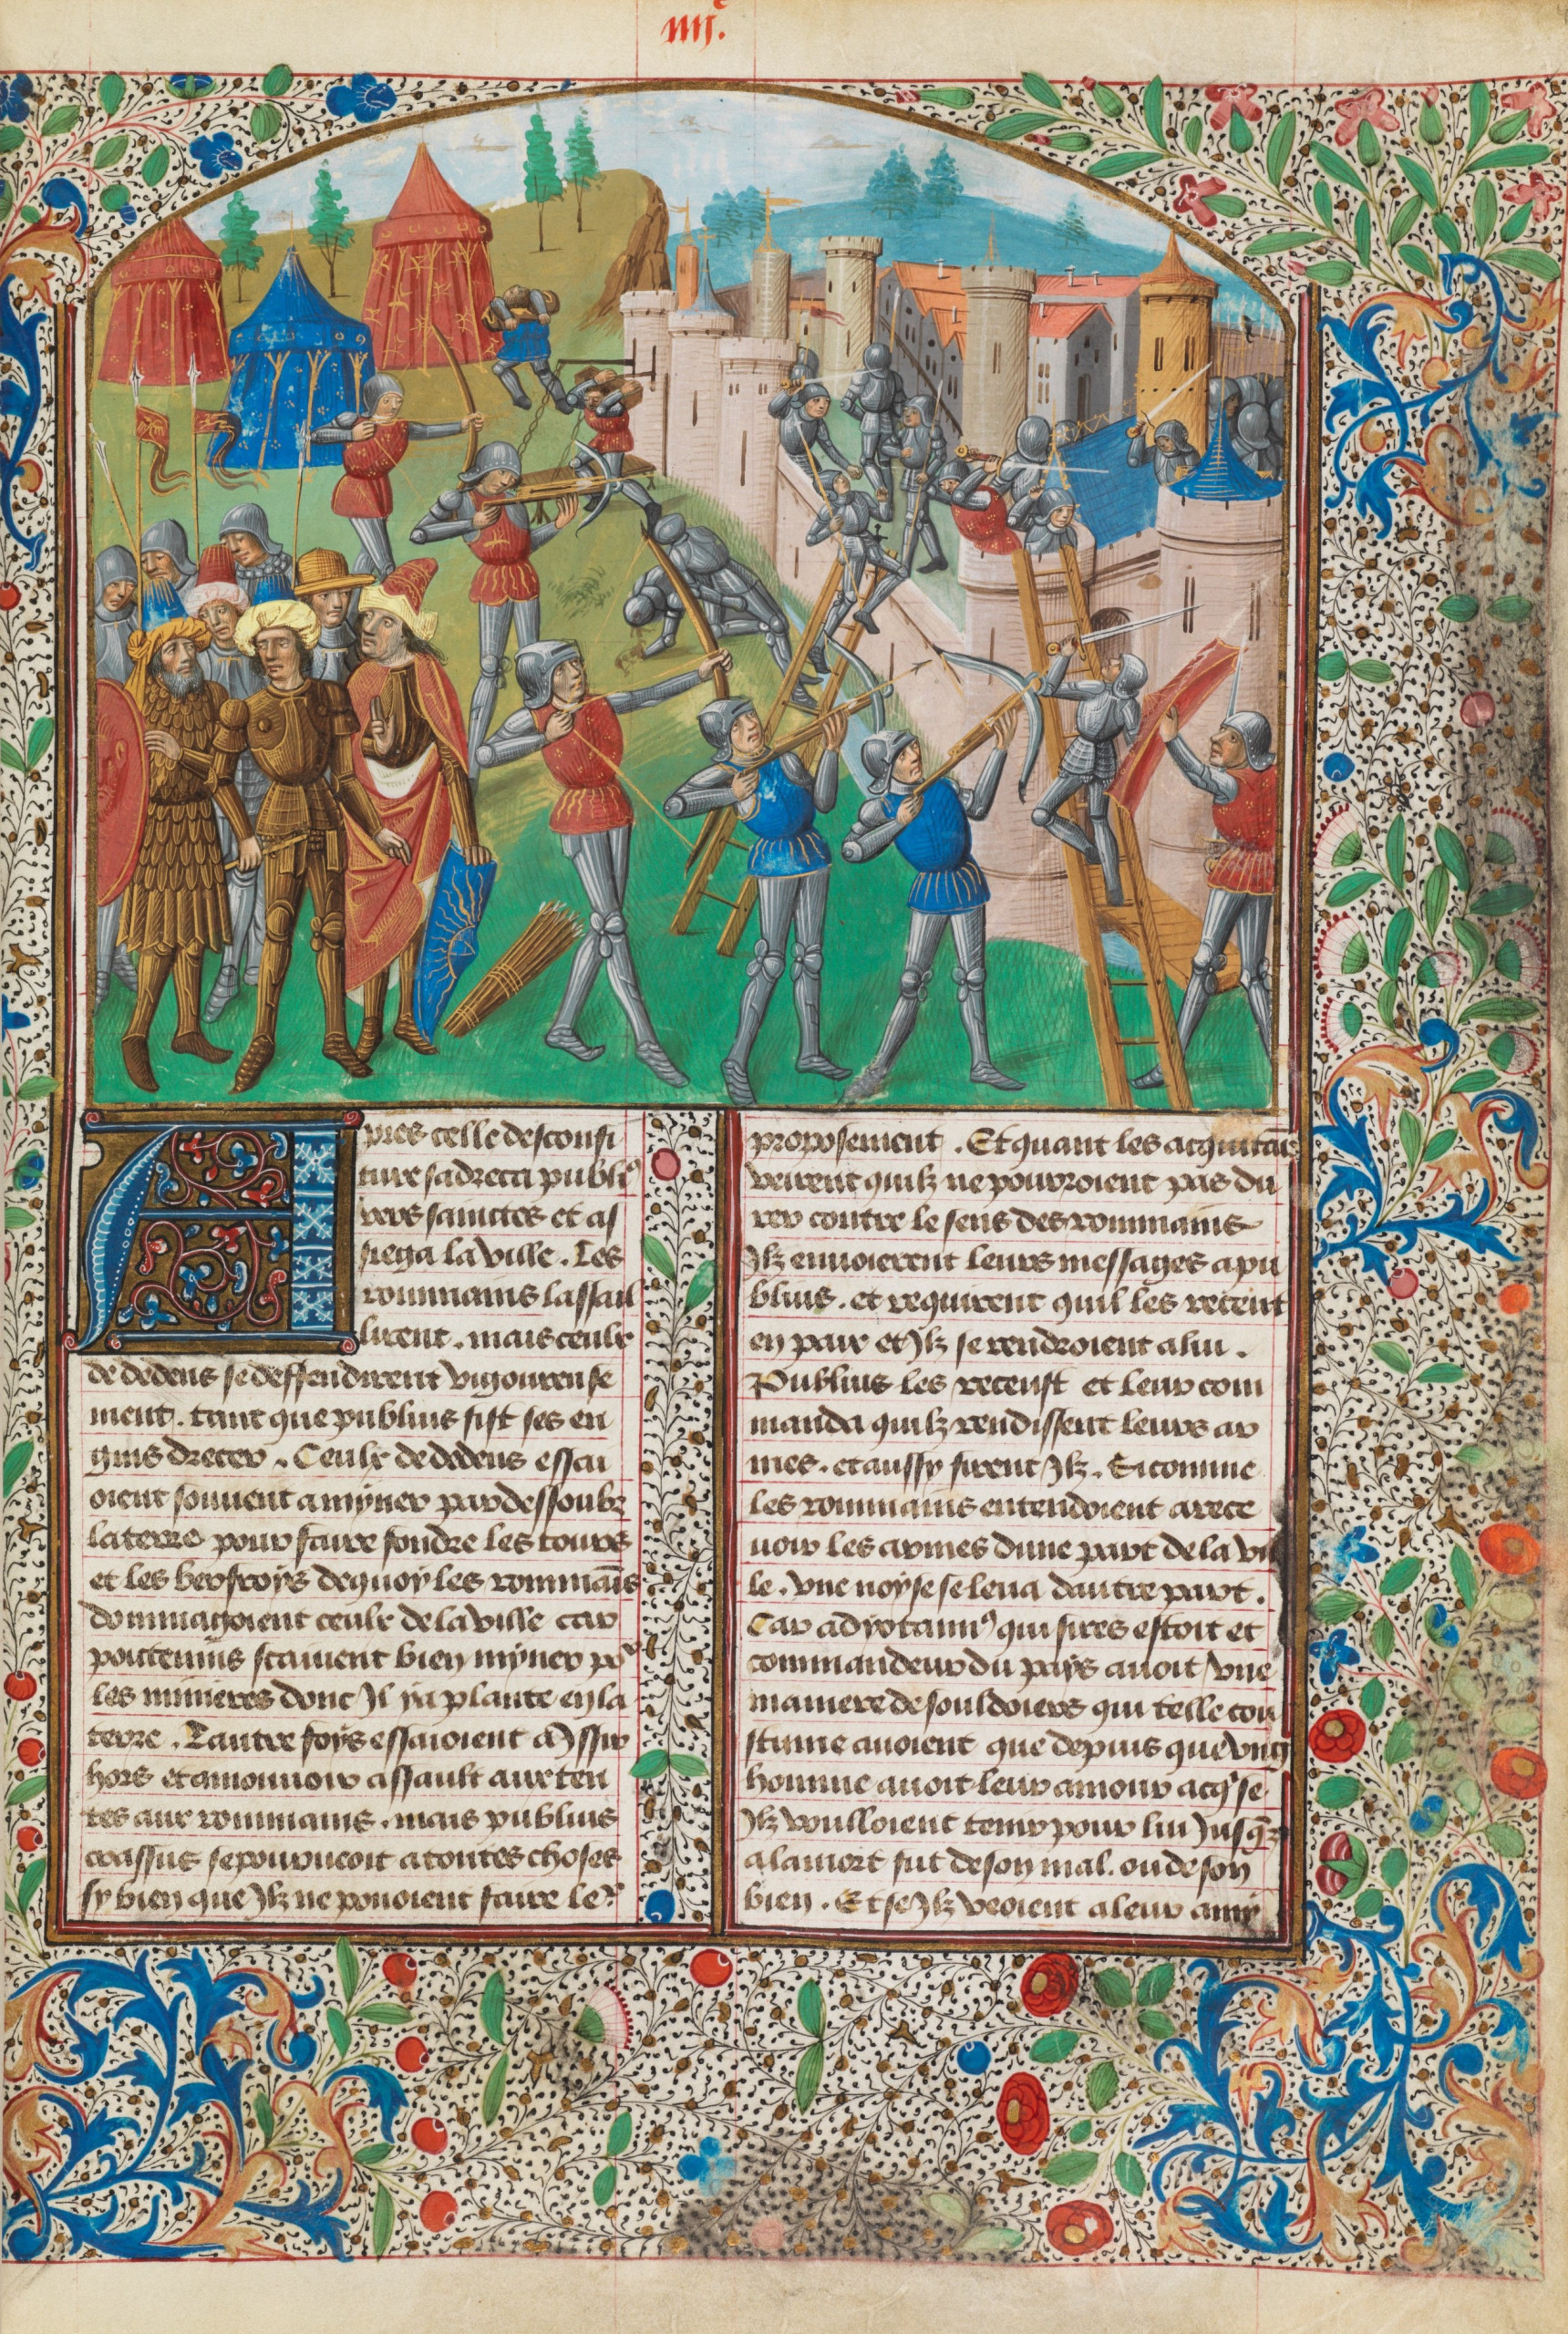 iiij.c
Apres celle desconfi
ture sadreca publi9
vers sainctes et as
siega la ville. Les
rommains lassail
lirent. mais ceulx
de dedens se deffendirent vigoureuse
ment. tant que publius fist ses en
gins drecer. Ceulx de dedens essai
oient souvent a myner par dessoubz
la terre pour faire fondre les tours
et les berfroys de quoy les rommais
dommagoient ceulx de la ville car
poitevins scaivent bien myner po2
les minieres dont Il ya plante en la
terre. Lautre foys essaioient a yssir
hors et amouvoir assault aux ten
tes aux rommains. mais publius
crassus se pourveoit a toutes choses
sy bien que Ilz ne povoient faire le2
proposement. Et quant les acquitais
veirent quilz ne pourroient pas du
rer contre le sens des rommains
Ilz envoierent leurs messages a pu
blius. et requirent quil les receut
en paix et Ilz se rendroient a lui.
Publius les receust et leur com
manda quilz rendissent leurs ar
mes. et aussy firent Ilz. Si comme
les rommains entendoient a rece
voir les armes dune part de la vil
le. vne noyse se leva dautre part.
Car adyotann9 qui sires estoit et
commandeur du pays avoit vne
maniere de souldoiers qui telle cou
stume avoient que depuis que vng
homme avoit leur amour acqse
Ilz voulloient tenir pour lui Jusqz
a la mort fut de son mal. ou de son
bien. Et se Ilz veoient a leur amy